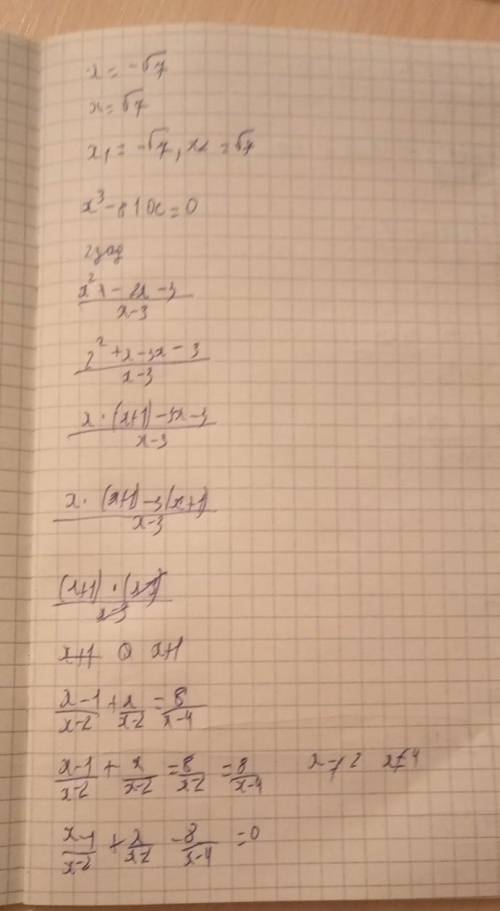 x = -√7
x = √7
x₁ = -√7, x₂ = √7
x³ - 81x = 0
2 зад
x² - 2x - 3 / x-3
x² + x - 3x - 3 / x-3
x · (x+1) - 3x - 3 / x-3
x · (x+1) - 3(x+1) / x-3
(x+1) · (x-3) / x-3
x+1 O x+1
x-1 / x-2 + x / x-2 = 8 / x-4
x-1 / x-2 + x / x-2 = 8 / x-2 = 8 / x-4 x ≠ 2 x ≠ 4
x-1 / x-2 + x / x-2 - 8 / x-4 = 0